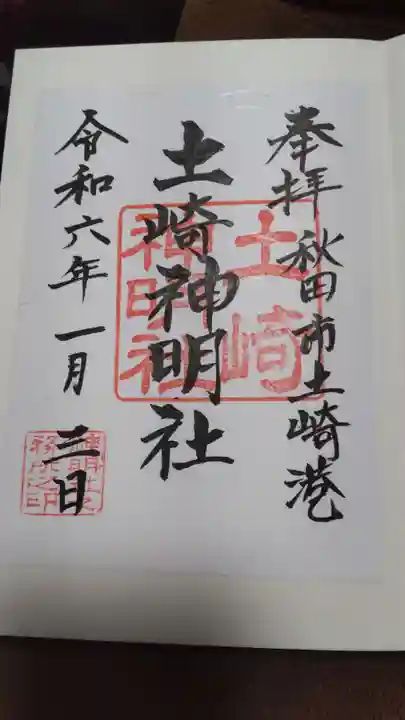 奉拝 秋田市土崎港
土崎神明社
土崎
神明社
令和六年 一月 三日